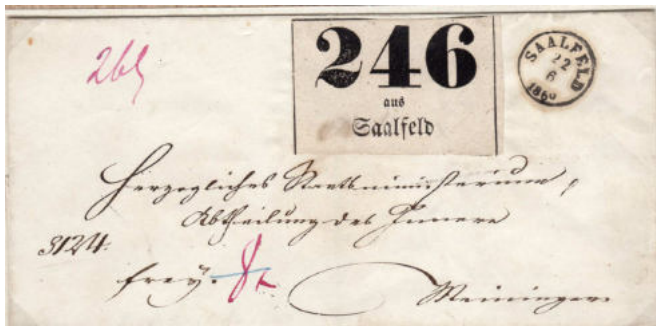 246
aus
Saalfeld
SAALFELD
22
6
1860
Herzogliches Staatsministerium,
Abtheilung des Innern
3124.
frey.
Meiningen.